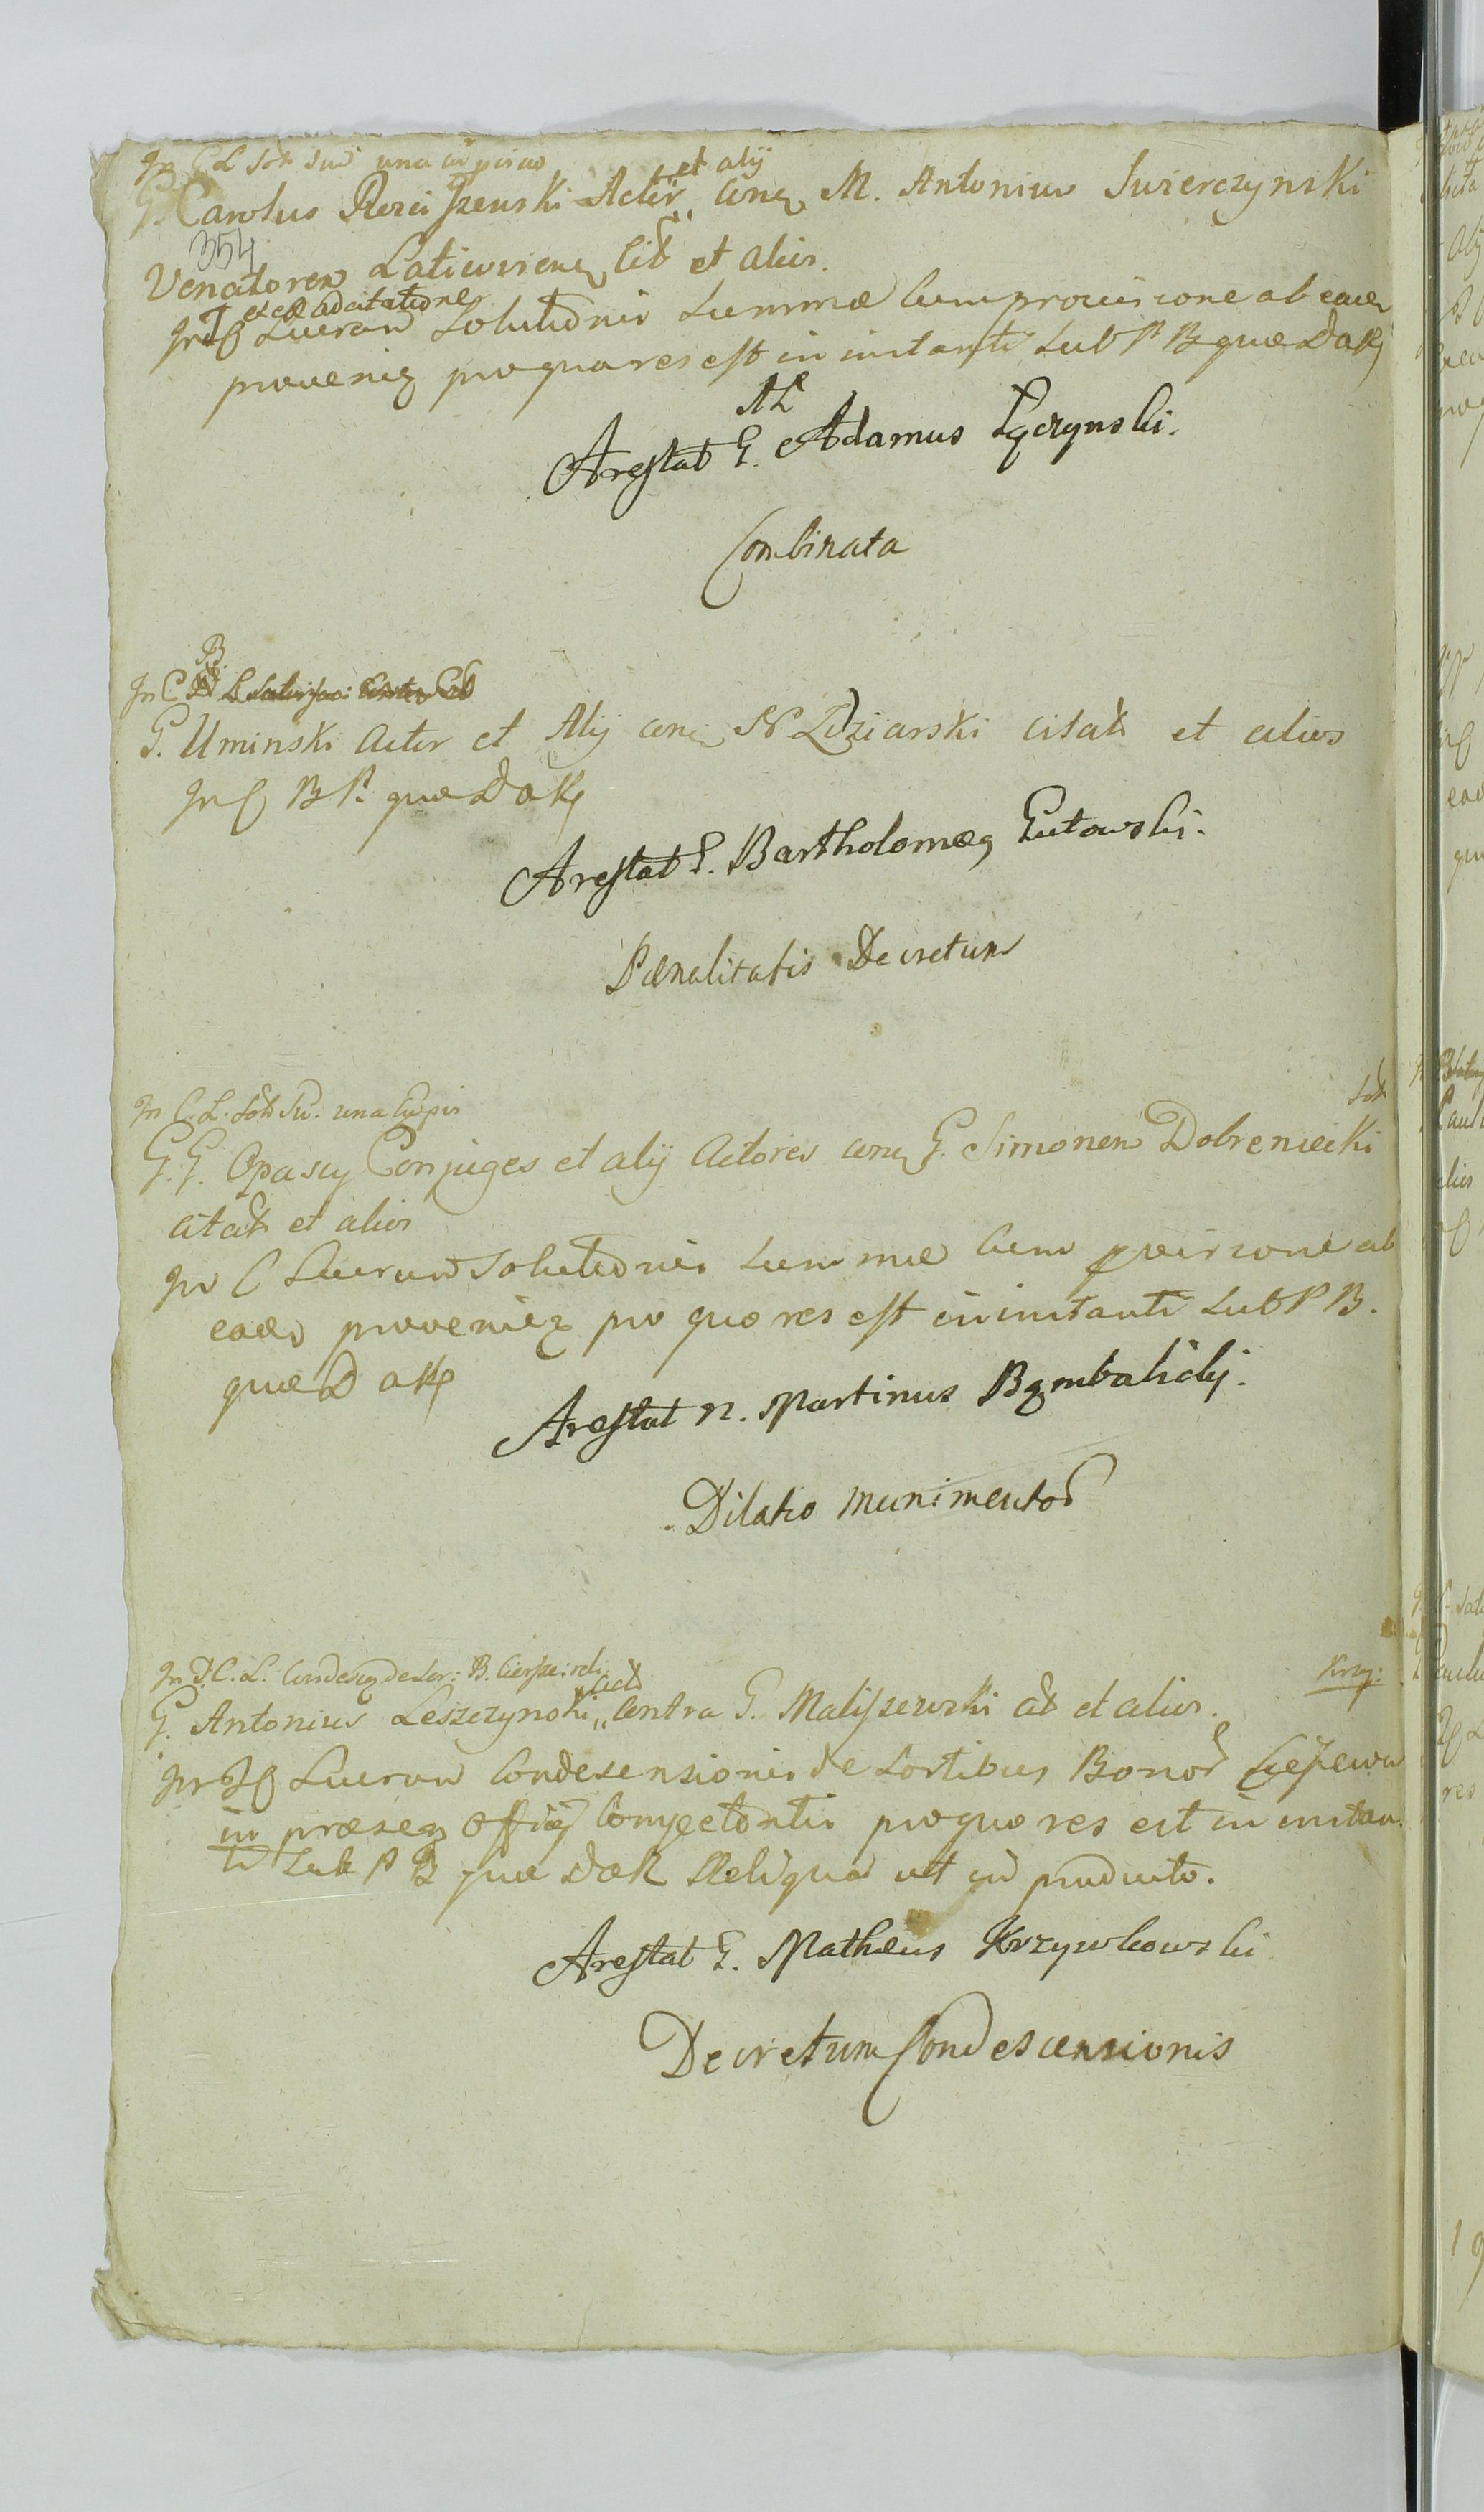 In C L Sol Sum una cu provis
G. Carolus Rosciszewski Actor et alij con M. Antonium Swierczynski
354
Venatorem Laticzvien Cit et alios.
et ex adcitatione
In Lucrum Solutionis Summæ cum provisione ab eadem
provenien pro qua res est in instanti sub P B quæ D
AL
Arestat G. Adamus Łączynski.
Combinata
B
In C L
G. Uminski Actor et Alij con N Zdziarski citat et alios
In B P. quæ D
Arestat G. Bartholomæg Gutowski.
Pænalitatis Decretum
In C. L. Sol Su. una cu pro
Sol
G. G. Opascy Conjuges et alij Actores con G. Simonem Dobreniecki
citat et alios
In C Lucrum Solutionis Summæ cum provisione ab
eadem provenien pro quo res est in instanti sub P B.
quæ D
Arestat N. Martinus Bąmbalski.
Dilatio munimentor
In C. L. Condescen de Sor: B. Cierpi
Krzy:
G. Antonius Leszczynski Act Contra G. Maliszewski cit et alios.
In Lucrum Condesensionis de Sortibus Bonor
in præsen Offi Competentis pro quo res est in instan
ti sub P B quæ D Reliqua ut in producto.
Arestat G. Mathæus Krzywkowski
Decretum Condescensionis